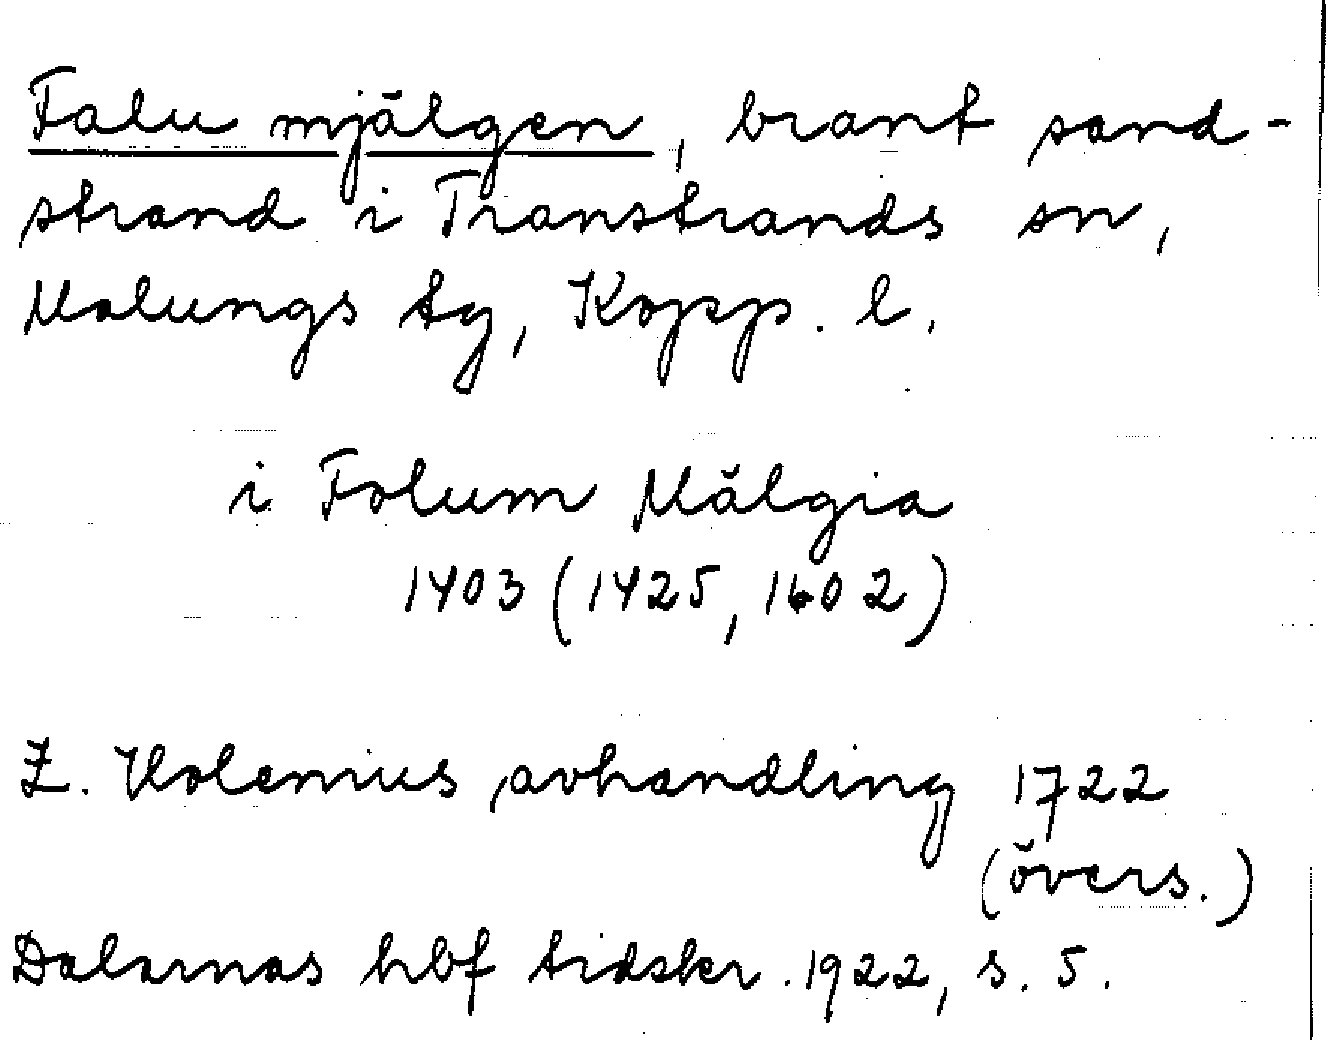 Falu mjälgen, brant sand-
strand i Transtrands sn,
Malungs tg, Kopp. l.
i Folum Mälgia
1403 (1425, 1602)
Z. Holenius avhandling 1722
(övers.)
Dalarnas hbf tidskr. 1922, s. 5.